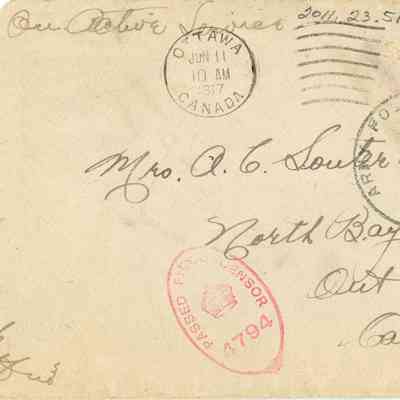 On Active Service
2011.23.51
OTTAWA
JUN 11
10 AM
1917
CANADA
ARMY PO
Mrs. A. C. Souter
North Bay
Ont
Ca
PASSED FIELD CENSOR
4794